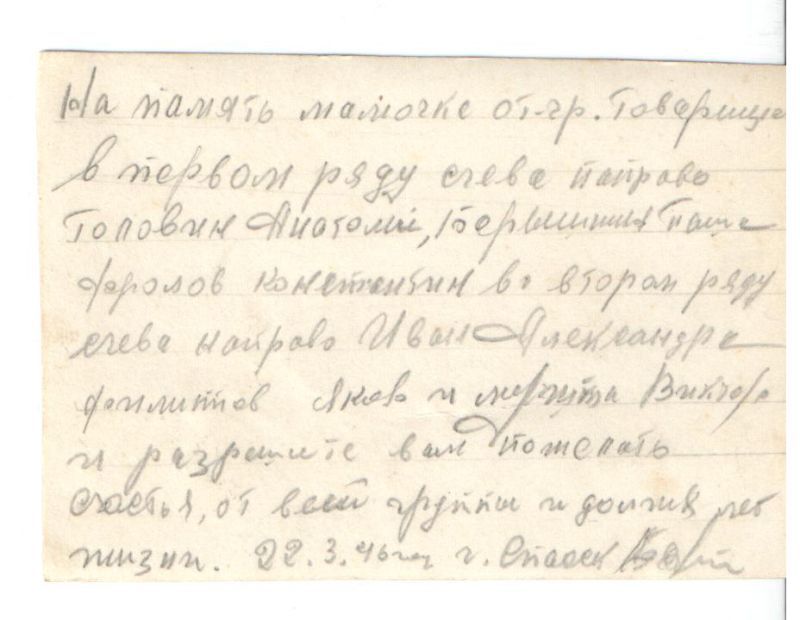 На память мамочке от гр. товарища
в первом ряду слева направо
Головин Анатолий, Паша
Фролов Константин во втором ряду
слева направо Иван Александра
Филиппов Яков и Виктор
и разрешите вам пожелать
счастья, от всей группы и долгих лет
жизни. 22.3.46 год г. Спасск